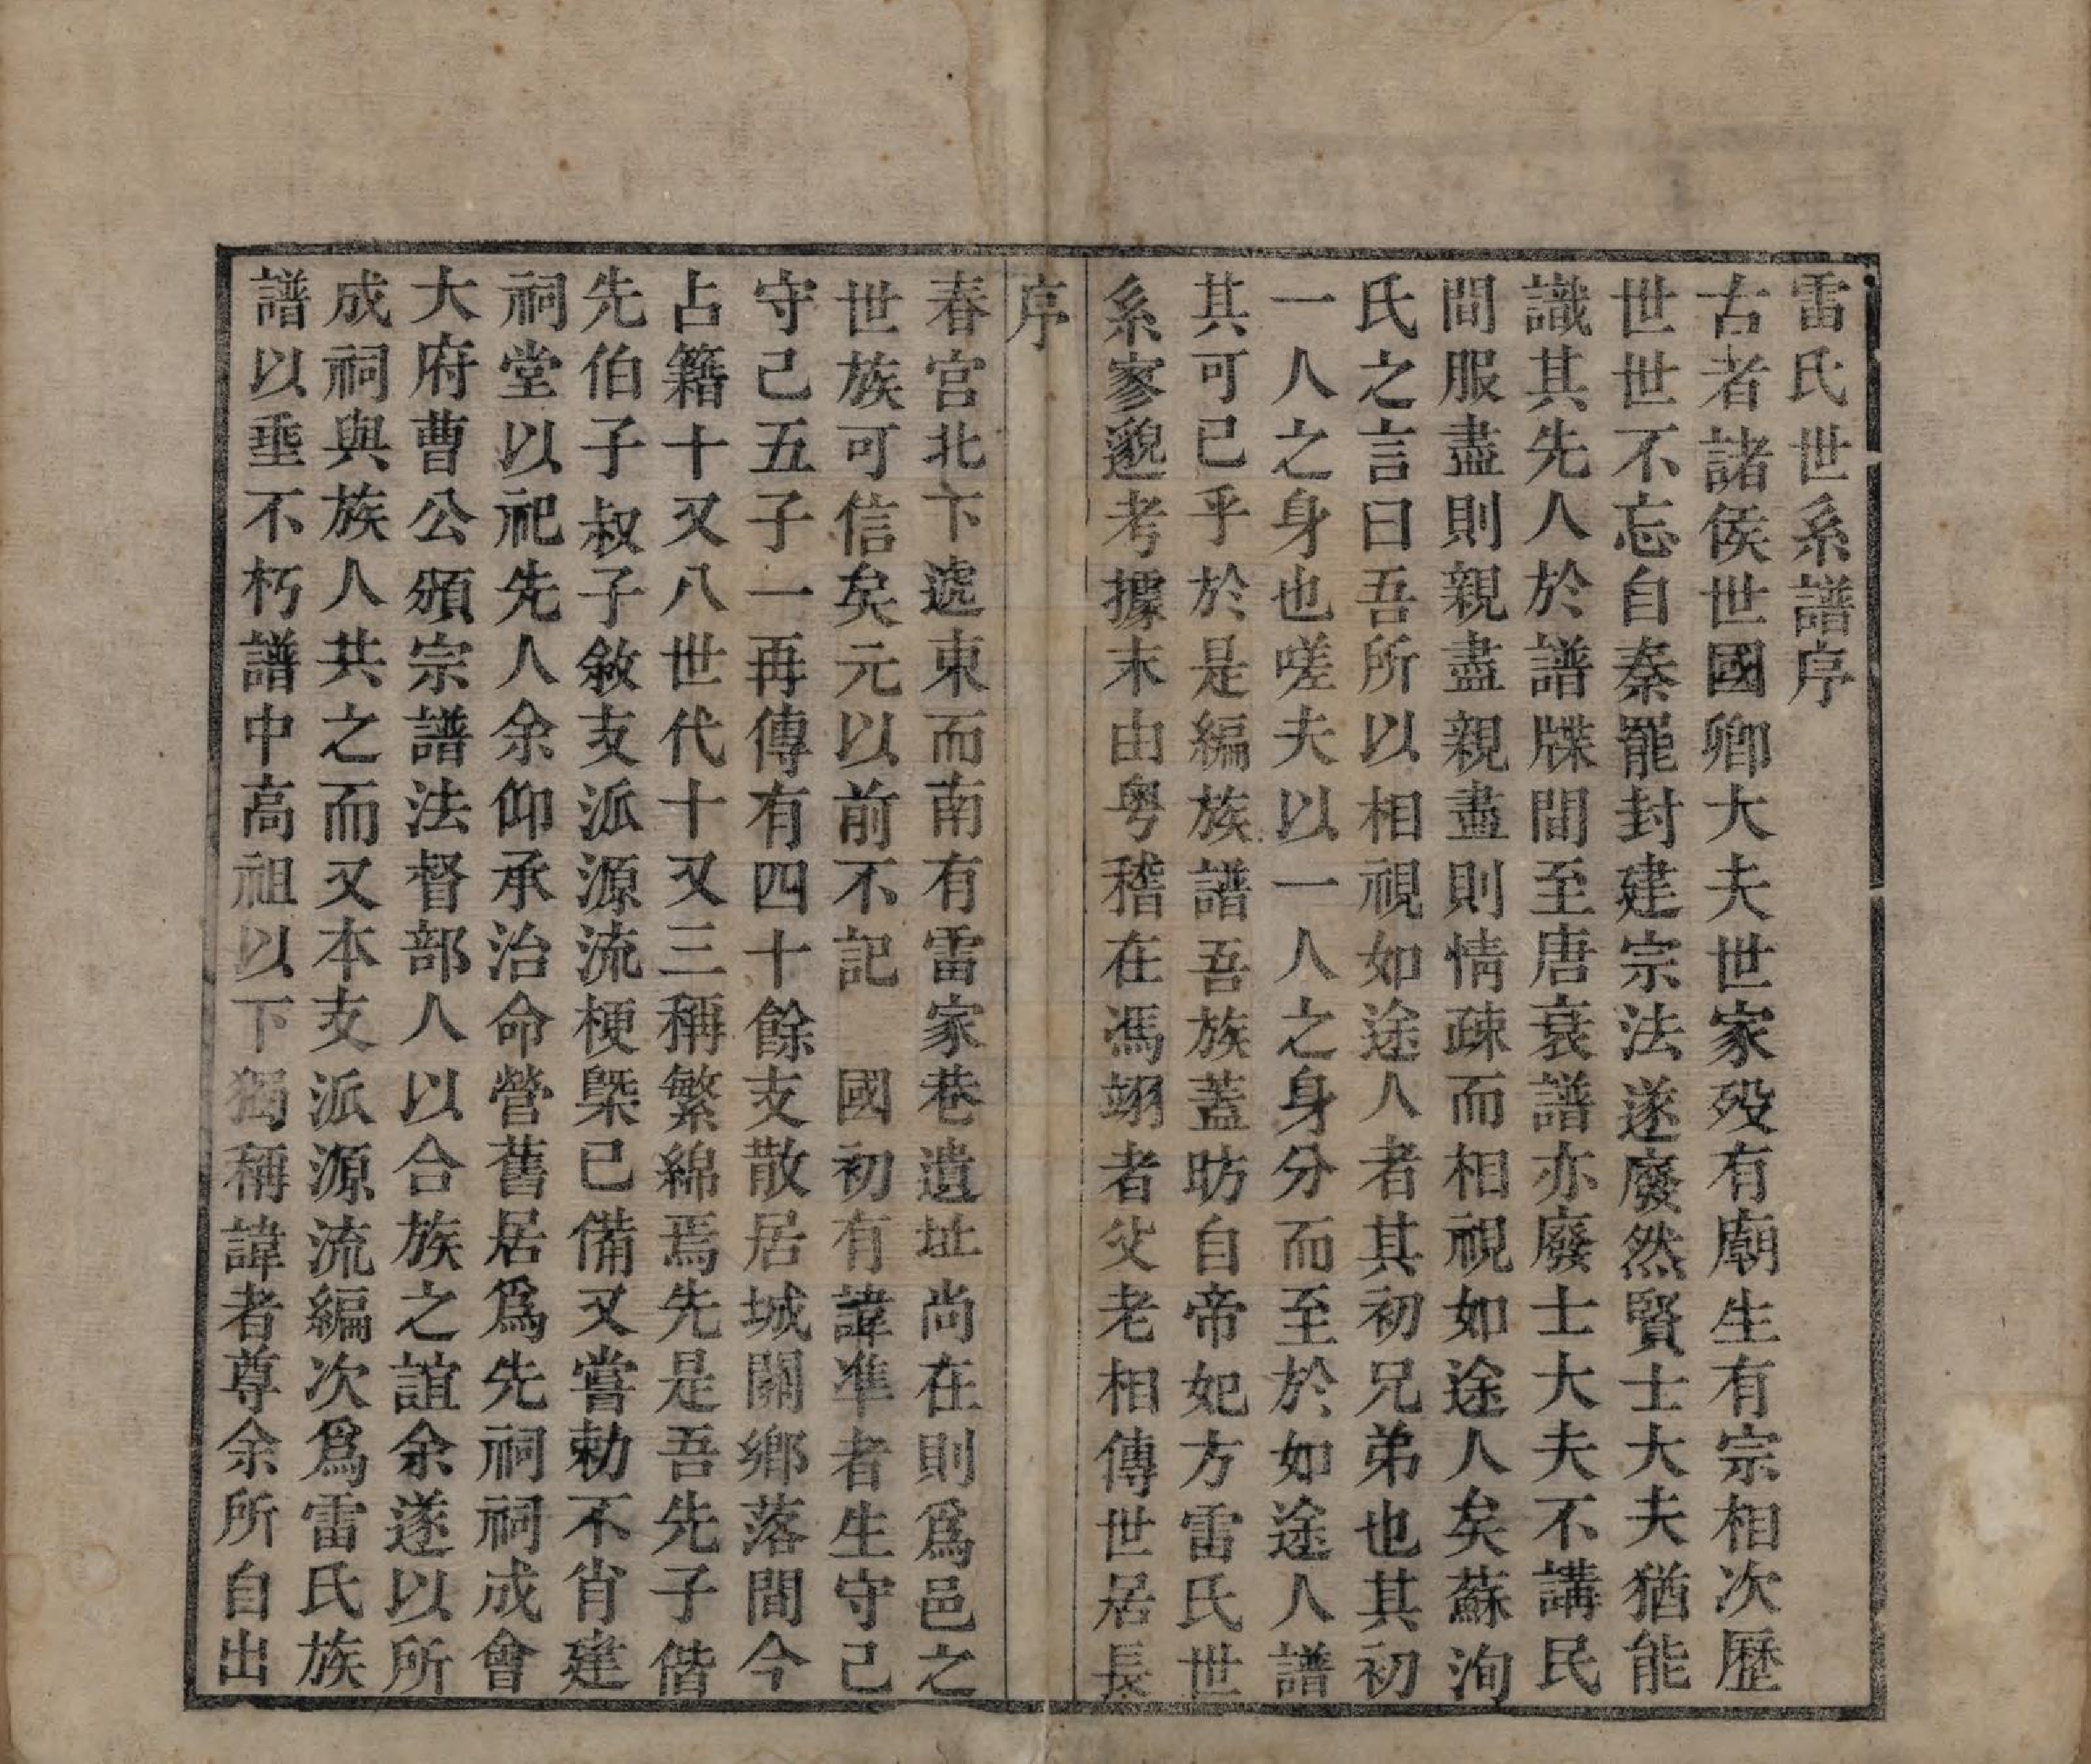 雷氏世系譜序
古者諸侯世國卿大夫世家殁有廟生有宗相次歷
世世不忘自秦罷封建宗法遂廢然賢士大夫猶能
識其先人於譜牒間至唐衰譜亦廢士大夫不講民
間服盡則親盡親盡則情疎而相視如途人矣蘇洵
氏之言曰吾所以相視如途人者其初兄弟也其初
一人之身也嗟夫以一人之身分而至於如途人譜
其可已乎於是編族譜吾族蓋昉自帝妃方雷氏世
系寥邈考據末由粤稽在馮翊者父老相傳世居長
序
春宮北下遞東而南有雷家巷遺址尚在則爲邑之
世族可信矣元以前不記　國初有諱準者生守己
守己五子一再傳有四十餘支散居城關鄉落間今
占籍十又八世代十又三稱繁綿焉先是吾先子偕
先伯子叔子敘支派源流梗槩已備又嘗勅不肖建
祠堂以祀先人余仰承治命營舊居爲先祠祠成會
大府曹公頒宗譜法督部人以合族之誼余遂以所
成祠與族人共之而又本支派源流編次爲雷氏族
譜以垂不朽譜中高祖以下獨稱諱者尊余所自出